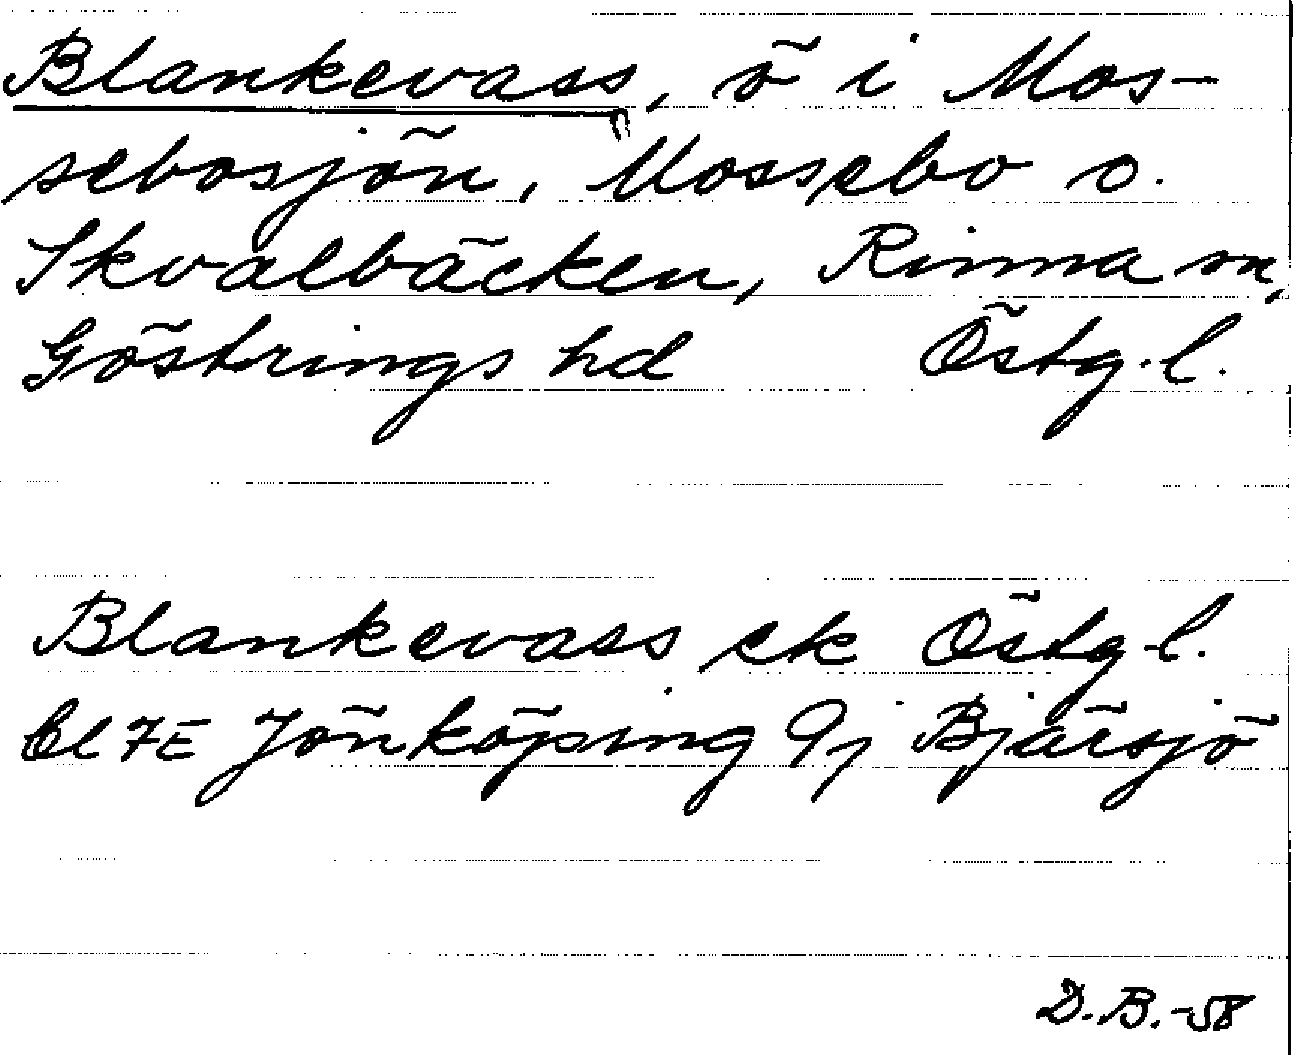 Blankevass, ö i Mos-
sebosjön, Mossebo o.
Skvalbäcken, Rinna sn,
Göstrings hd Östg.l.
Blankevass ek Östg.l.
bl 7E Jönköping 9j Bjärsjö
D.B.-58